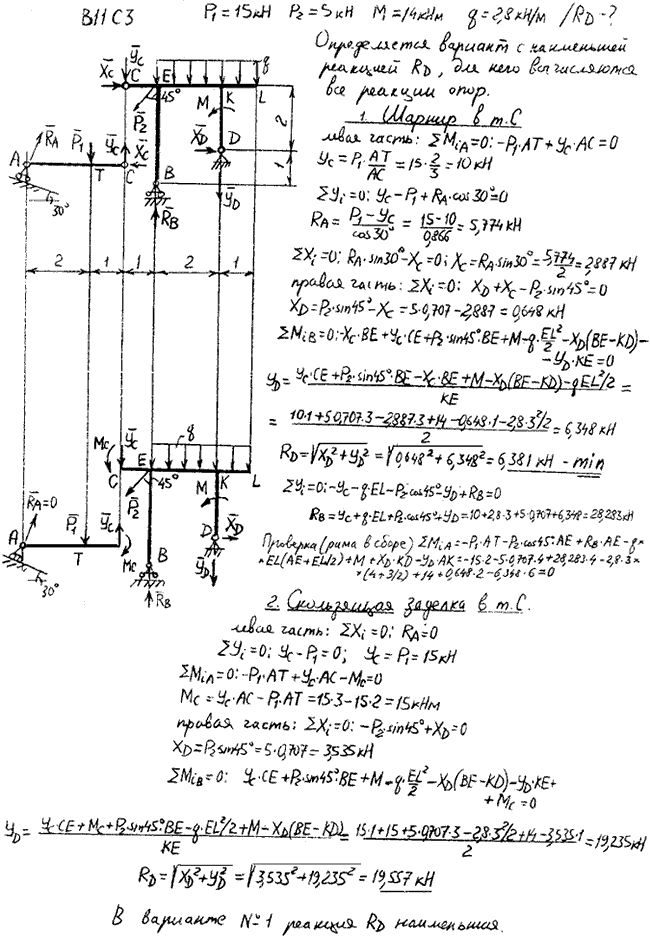 В11 С3
P₁ = 15кН P₂ = 5кН M = 14кНм q = 2,8кН/м /R_D - ?
Определяется вариант с наименьшей
реакцией R_D, для него вычисляются
все реакции опор.
1. Шарнир в т. С
левая часть: ΣM_iA=0: -P₁·AT + Y_C·AC = 0
Y_C = P₁·AT/AC = 15·2/3 = 10 кН
ΣY_i=0: Y_C - P₁ + R_A·cos30°=0
R_A = (P₁ - Y_C)/cos30° = (15-10)/0,866 = 5,774 кН
ΣX_i=0; R_A·sin30° - X_C = 0; X_C = R_A sin30° = 5,774/2 = 2,887 кН
правая часть: ΣX_i = 0: X_D + X_C - P₂·sin45° = 0
X_D = P₂·sin45° - X_C = 5·0,707 - 2,887 = 0,648 кН
ΣM_iB=0: -X_C·BE + Y_C·CE + P₂·sin45°·BE + M - q·EL²/2 - X_D(BE-KD) -
- Y_D·KE = 0
Y_D = (Y_C·CE + P₂·sin45°·BE - X_C·BE + M - X_D(BE-KD) - qEL²/2)/KE =
= (10·1 + 5·0,707·3 - 2,887·3 + 14 - 0,648·1 - 2,8·3²/2)/2 = 6,348 кН
R_D = √(X_D² + Y_D²) = √(0,648² + 6,348²) = 6,381 кН - min
ΣY_i=0: -Y_C - q·EL - P₂·cos45° - Y_D + R_B = 0
R_B = Y_C + q·EL + P₂·cos45° + Y_D = 10 + 2,8·3 + 5·0,707 + 6,348 = 28,283 кН
Проверка (рама в сборе) ΣM_iA = -P₁·AT - P₂·cos45°·AE + R_B·AE - q×
×EL(AE + EL/2) + M + X_D·KD - Y_D·AK = -15·2 - 5·0,707·4 + 28,283·4 - 2,8·3×
×(4+3/2) + 14 + 0,648·2 - 6,348·6 = 0
2. Скользящая заделка в т. С.
левая часть: ΣX_i = 0; R_A = 0
ΣY_i = 0; Y_C - P₁ = 0; Y_C = P₁ = 15 кН
ΣM_iA = 0: -P₁·AT + Y_C·AC - M_C = 0
M_C = Y_C·AC - P₁·AT = 15·3 - 15·2 = 15 кНм
правая часть: ΣX_i = 0: -P₂·sin45° + X_D = 0
X_D = P₂sin45° = 5·0,707 = 3,535 кН
ΣM_iB = 0: Y_C·CE + P₂·sin45°·BE + M - q·EL²/2 - X_D(BE-KD) - Y_D·KE +
+ M_C = 0
Y_D = (Y_C·CE + M_C + P₂·sin45°·BE - q·EL²/2 + M - X_D(BE-KD))/KE = (15·1 + 15 + 5·0,707·3 - 2,8·3²/2 + 14 - 3,535·1)/2 = 19,235 кН
R_D = √(X_D² + Y_D²) = √(3,535² + 19,235²) = 19,557 кН
В варианте №1 реакция R_D наименьшая.
Y_C
X_C C E q
45° M K L
P₂ X_D D 2
R_A P₁ Y_C X_C
A T C B 1
30° R_B Y_D
2 1 1 2 1
M_C Y_C q
C E 45° M K L
R_A=0 P₁ Y_C P₂ D X_D
A T M_C B Y_D
30° R_B